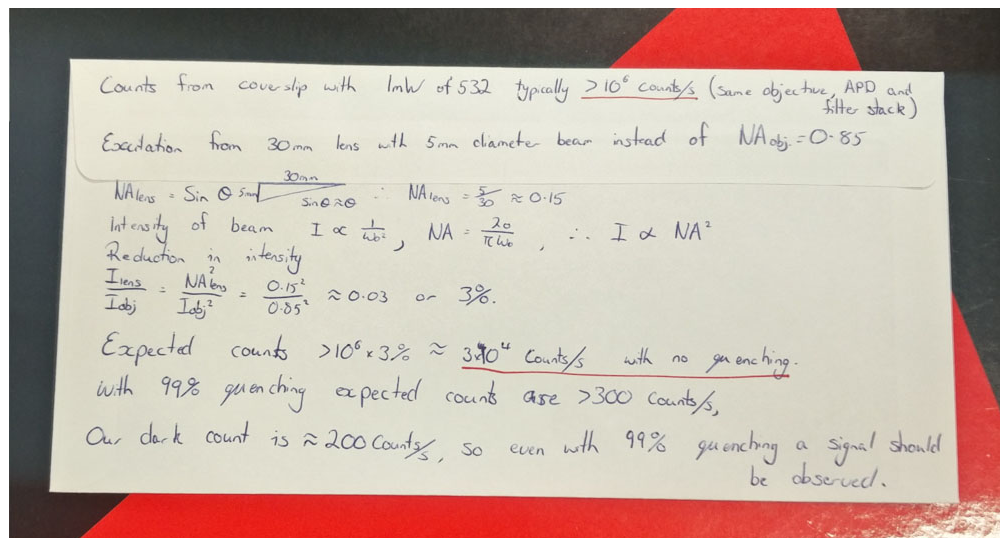 Counts from coverslip with 1mW of 532 typically >10⁶ counts/s (same objective, APD and
filter stack)
Excitation from 30mm lens with 5mm diameter beam instead of NAobj. = 0.85
30mm
NAlens = Sin θ 5mm Sinθ≈θ ∴ NAlens = 5/30 ≈ 0.15
Intensity of beam I ∝ 1/W₀², NA = λ₀/πW₀, ∴ I ∝ NA²
Reduction in intensity
Ilens/Iobj = NA²lens/Iobj² = 0.15²/0.85² ≈ 0.03 or 3%.
Expected counts >10⁶ x 3% ≈ 3x10⁴ Counts/s with no quenching.
with 99% quenching expected counts are >300 Counts/s,
Our dark count is ≈ 200 Counts/s, so even with 99% quenching a signal should
be observed.